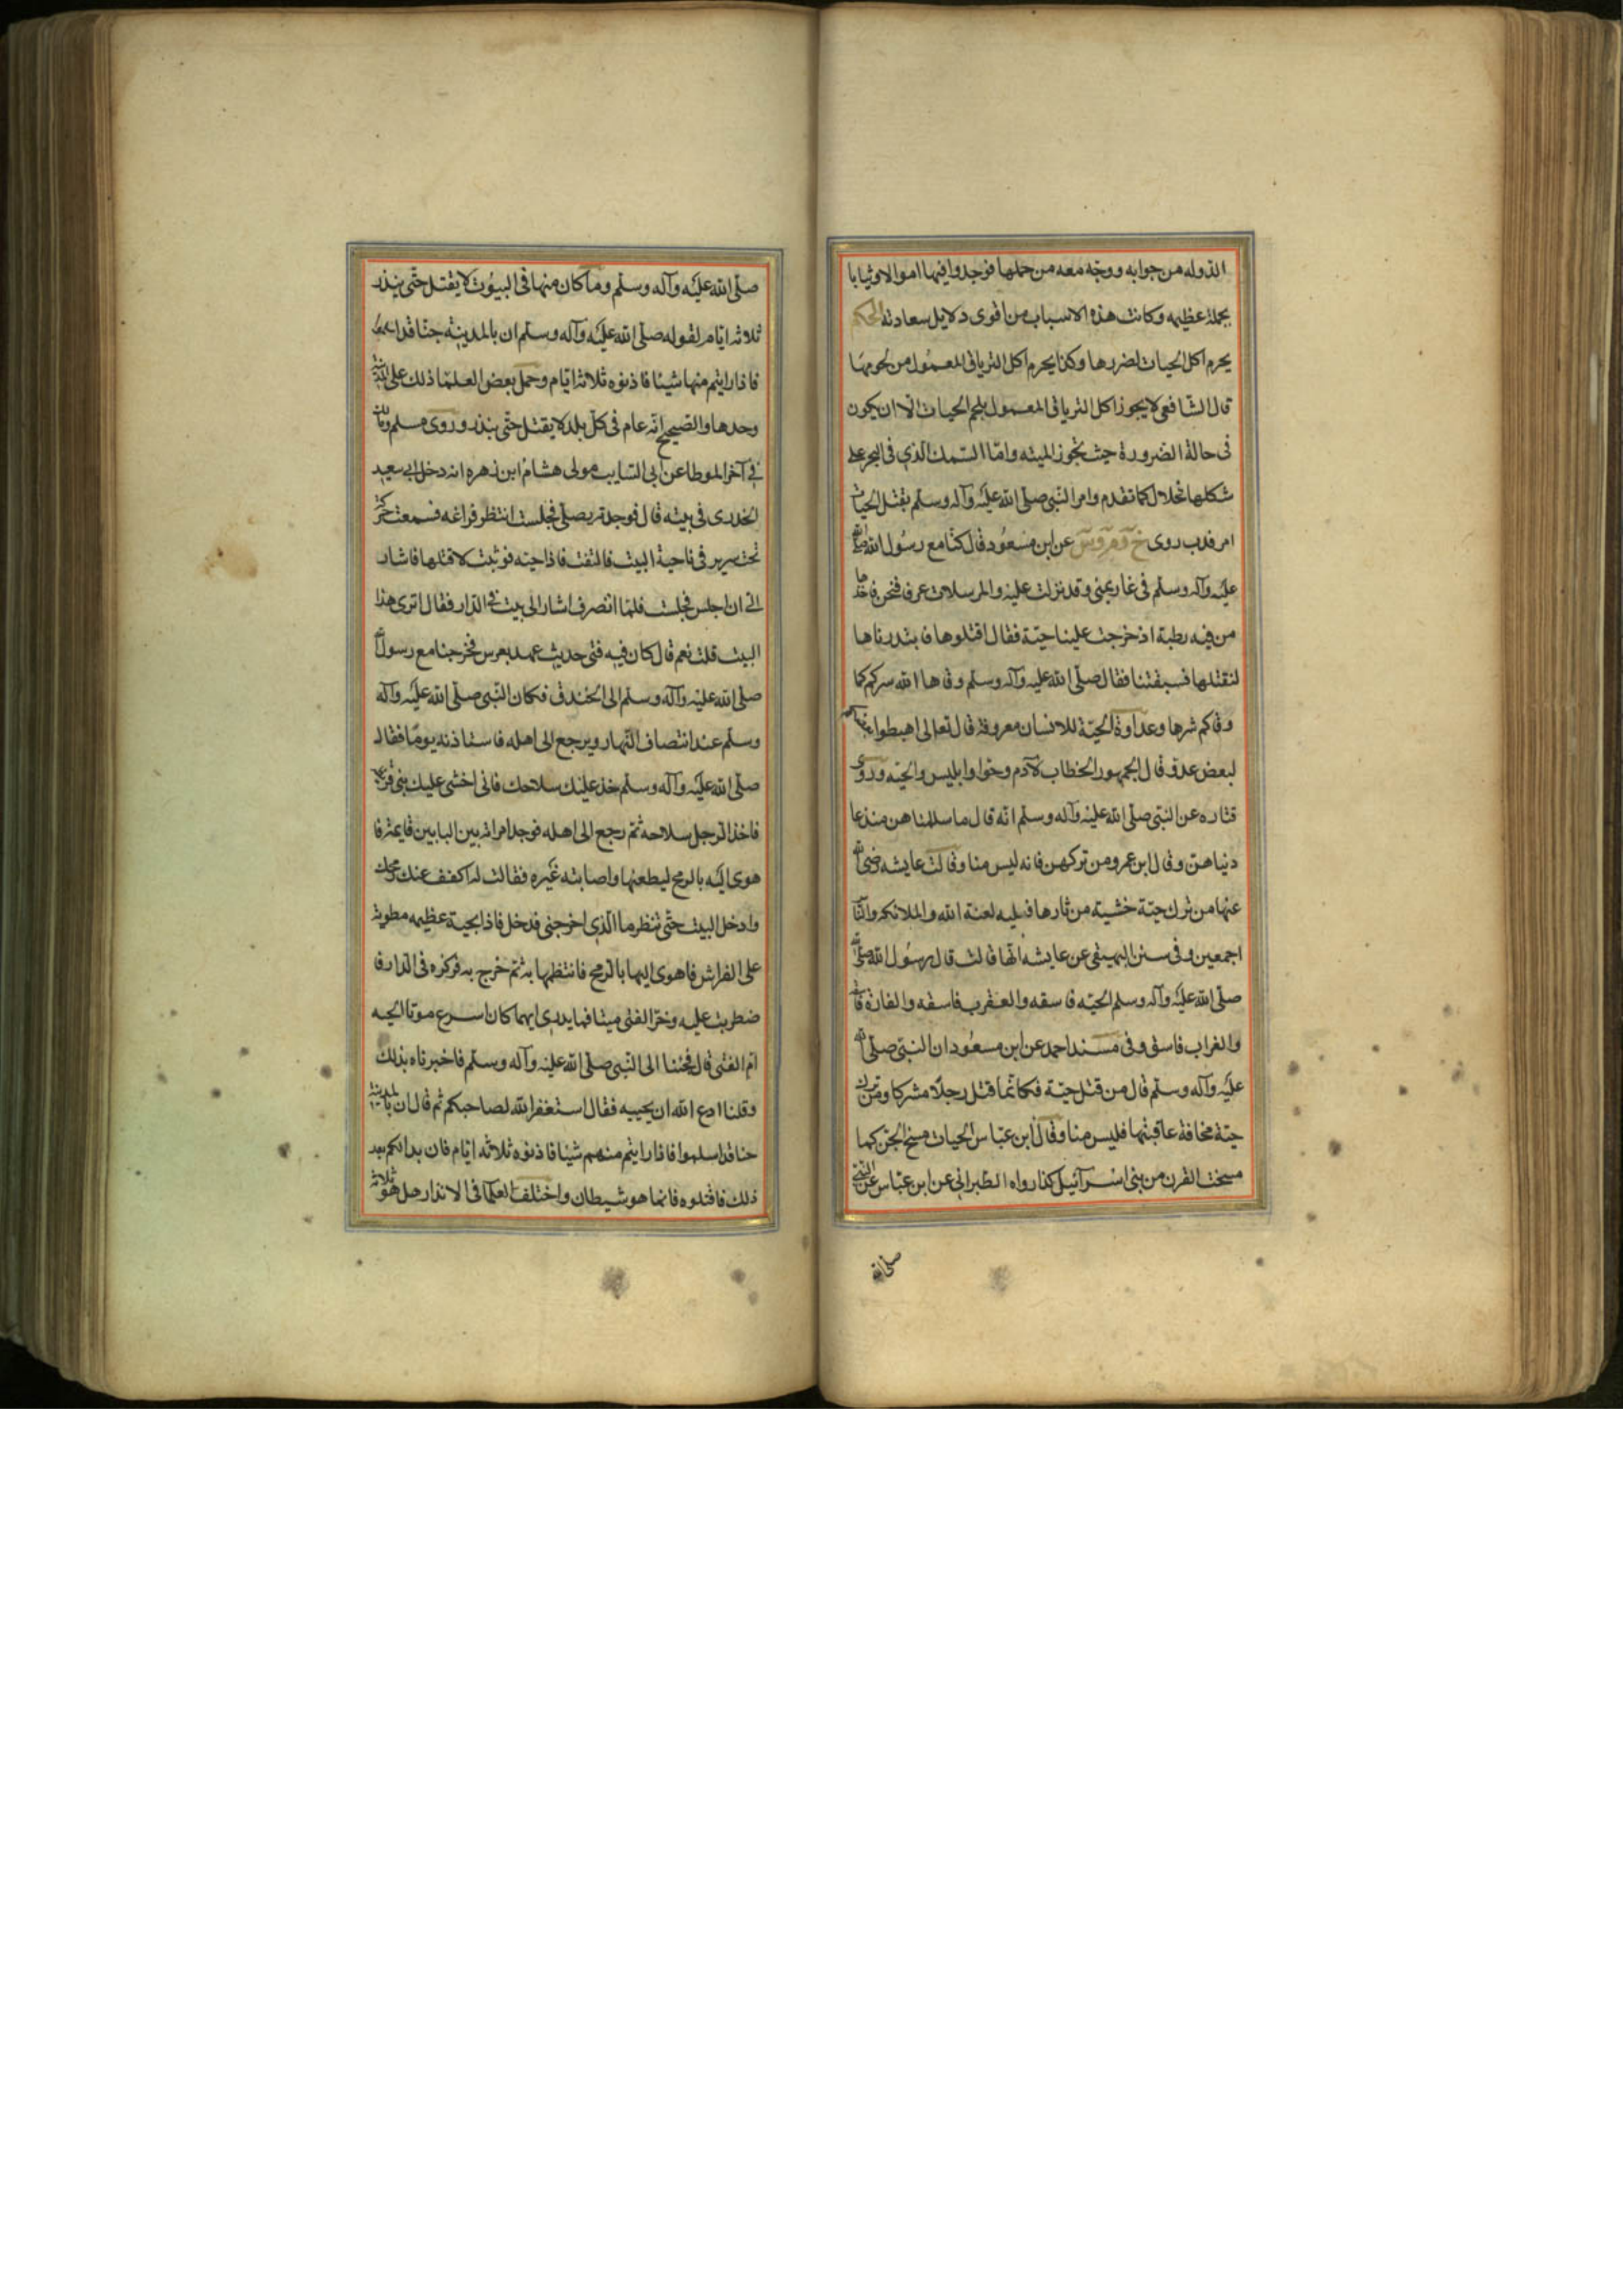 الدوله من جوابه ووجه معه من حملها فوجدوا فيها اموالا وثيابا
بجملة عظيمه وكانت هذه الاسباب من اقوى دلايل سعادته الحكم
يحرم اكل الحيات لضررها وكذا يحرم اكل الترياق المعمول من لحومها
قال الشافعي لا يجوز اكل الترياق المعمول بلحم الحيات الا ان يكون
في حالة الضرورة حيث تجوز الميته واما السمك الذي في البحر على
شكلها فحلال كما تقدم وامر النبي صلى الله عليه وآله وسلم بقتل الحيات
امر ندب روى خ و م و س عن ابن مسعود قال كنا مع رسول الله صلى
عليه وآله وسلم في غار بمنى وقد نزلت عليه والمرسلات عرفا فنحن ناخذها
من فيه رطبة اذ خرجت علينا حية فقال اقتلوها فابتدرناها
لنقتلها فسبقتنا فقال صلى الله عليه وآله وسلم وقاها الله شركم كما
وقاكم شرها وعداوة الحية للانسان معروفة قال تعالى اهبطوا بعضكم
لبعض عدو قال الجمهور الخطاب لآدم وحوا وابليس والحيه وروى
قتاده عن النبي صلى الله عليه وآله وسلم انه قال ما سالمناهن منذ عا
ديناهن وقال ابن عمر ومن تركهن فانه ليس منا وقالت عايشه رضي الله
عنها من ترك حية خشية من ثارها فعليه لعنة الله والملائكة والناس
اجمعين وفي سنن البيهقي عن عايشه انها قالت قال رسول الله صلى الله
صلى الله عليه وآله وسلم الحيه فاسقه والعقرب فاسقه والفارة فاسقة
والغراب فاسق وفي مسند احمد عن ابن مسعود ان النبي صلى الله
عليه وآله وسلم قال من قتل حية فكانما قتل رجلا مشركا ومن ترك
حية مخافة عاقبتها فليس منا وقال ابن عباس الحيات مسخ الجن كما
مسخت القرن من بني اسرآئيل كذا رواه الطبراني عن ابن عباس عن النبي
صلى الله
صلى الله عليه وآله وسلم وما كان منها في البيوت لا يقتل حتى ينذر
ثلاثه ايام لقوله صلى الله عليه وآله وسلم ان بالمدينة جنا قد اسلموا
فاذا رايتم منها شيئا فاذنوه ثلاثة ايام وحمل بعض العلما ذلك على المدينة
وحدها والصحيح انه عام في كل بلد لا يقتل حتى ينذر وروى مسلم ومالك
في آخر الموطا عن ابي السايب مولى هشام ابن زهره انه دخل ابي سعيد
الخدري في بيته قال فوجدته يصلي فجلست انتظر فراغه فسمعت حركة
تحت سرير في ناحية البيت فالتفت فاذا حيه فوثبت لاقتلها فاشار
الى ان اجلس فجلست فلما انصرف اشار الى بيت في الدار فقال اترى هذا
البيت قلت نعم قال كان فيه فتى حديث عهد بعرس فخرجنا مع رسول الله
صلى الله عليه وآله وسلم الى الخندق فكان النبي صلى الله عليه وآله
وسلم عند انتصاف النهار ويرجع الى اهله فاستاذنه يوما فقال
صلى الله عليه وآله وسلم خذ عليك سلاحك فاني اخشى عليك بني قريظة
فاخذ الرجل سلاحه ثم رجع الى اهله فوجد امراته بين البابين قايمة فا
هوى اليه بالرمح ليطعنها واصابته غيره فقالت له اكفف عنك رمحك
وادخل البيت حتى تنظر ما الذي اخرجني فدخل فاذا بحية عظيمه مطوية
على الفراش فاهوى اليها بالرمح فانتظمها به ثم خرج به فركزه في الدار فا
ضطربت عليه وخر الفتى ميتا فما يدرى ايهما كان اسرع موتا الحيه
ام الفتى قال فجئنا الى النبي صلى الله عليه وآله وسلم فاخبرناه بذلك
وقلنا ادع الله ان يحييه فقال استغفر الله لصاحبكم ثم قال ان بالمدينة
جنا قد اسلموا فاذا رايتم منهم شيئا فاذنوه ثلاثه ايام فان بدا لكم بعد
ذلك فاقتلوه فانما هو شيطان واختلف العلما في الانذار هل هو ثلاثة